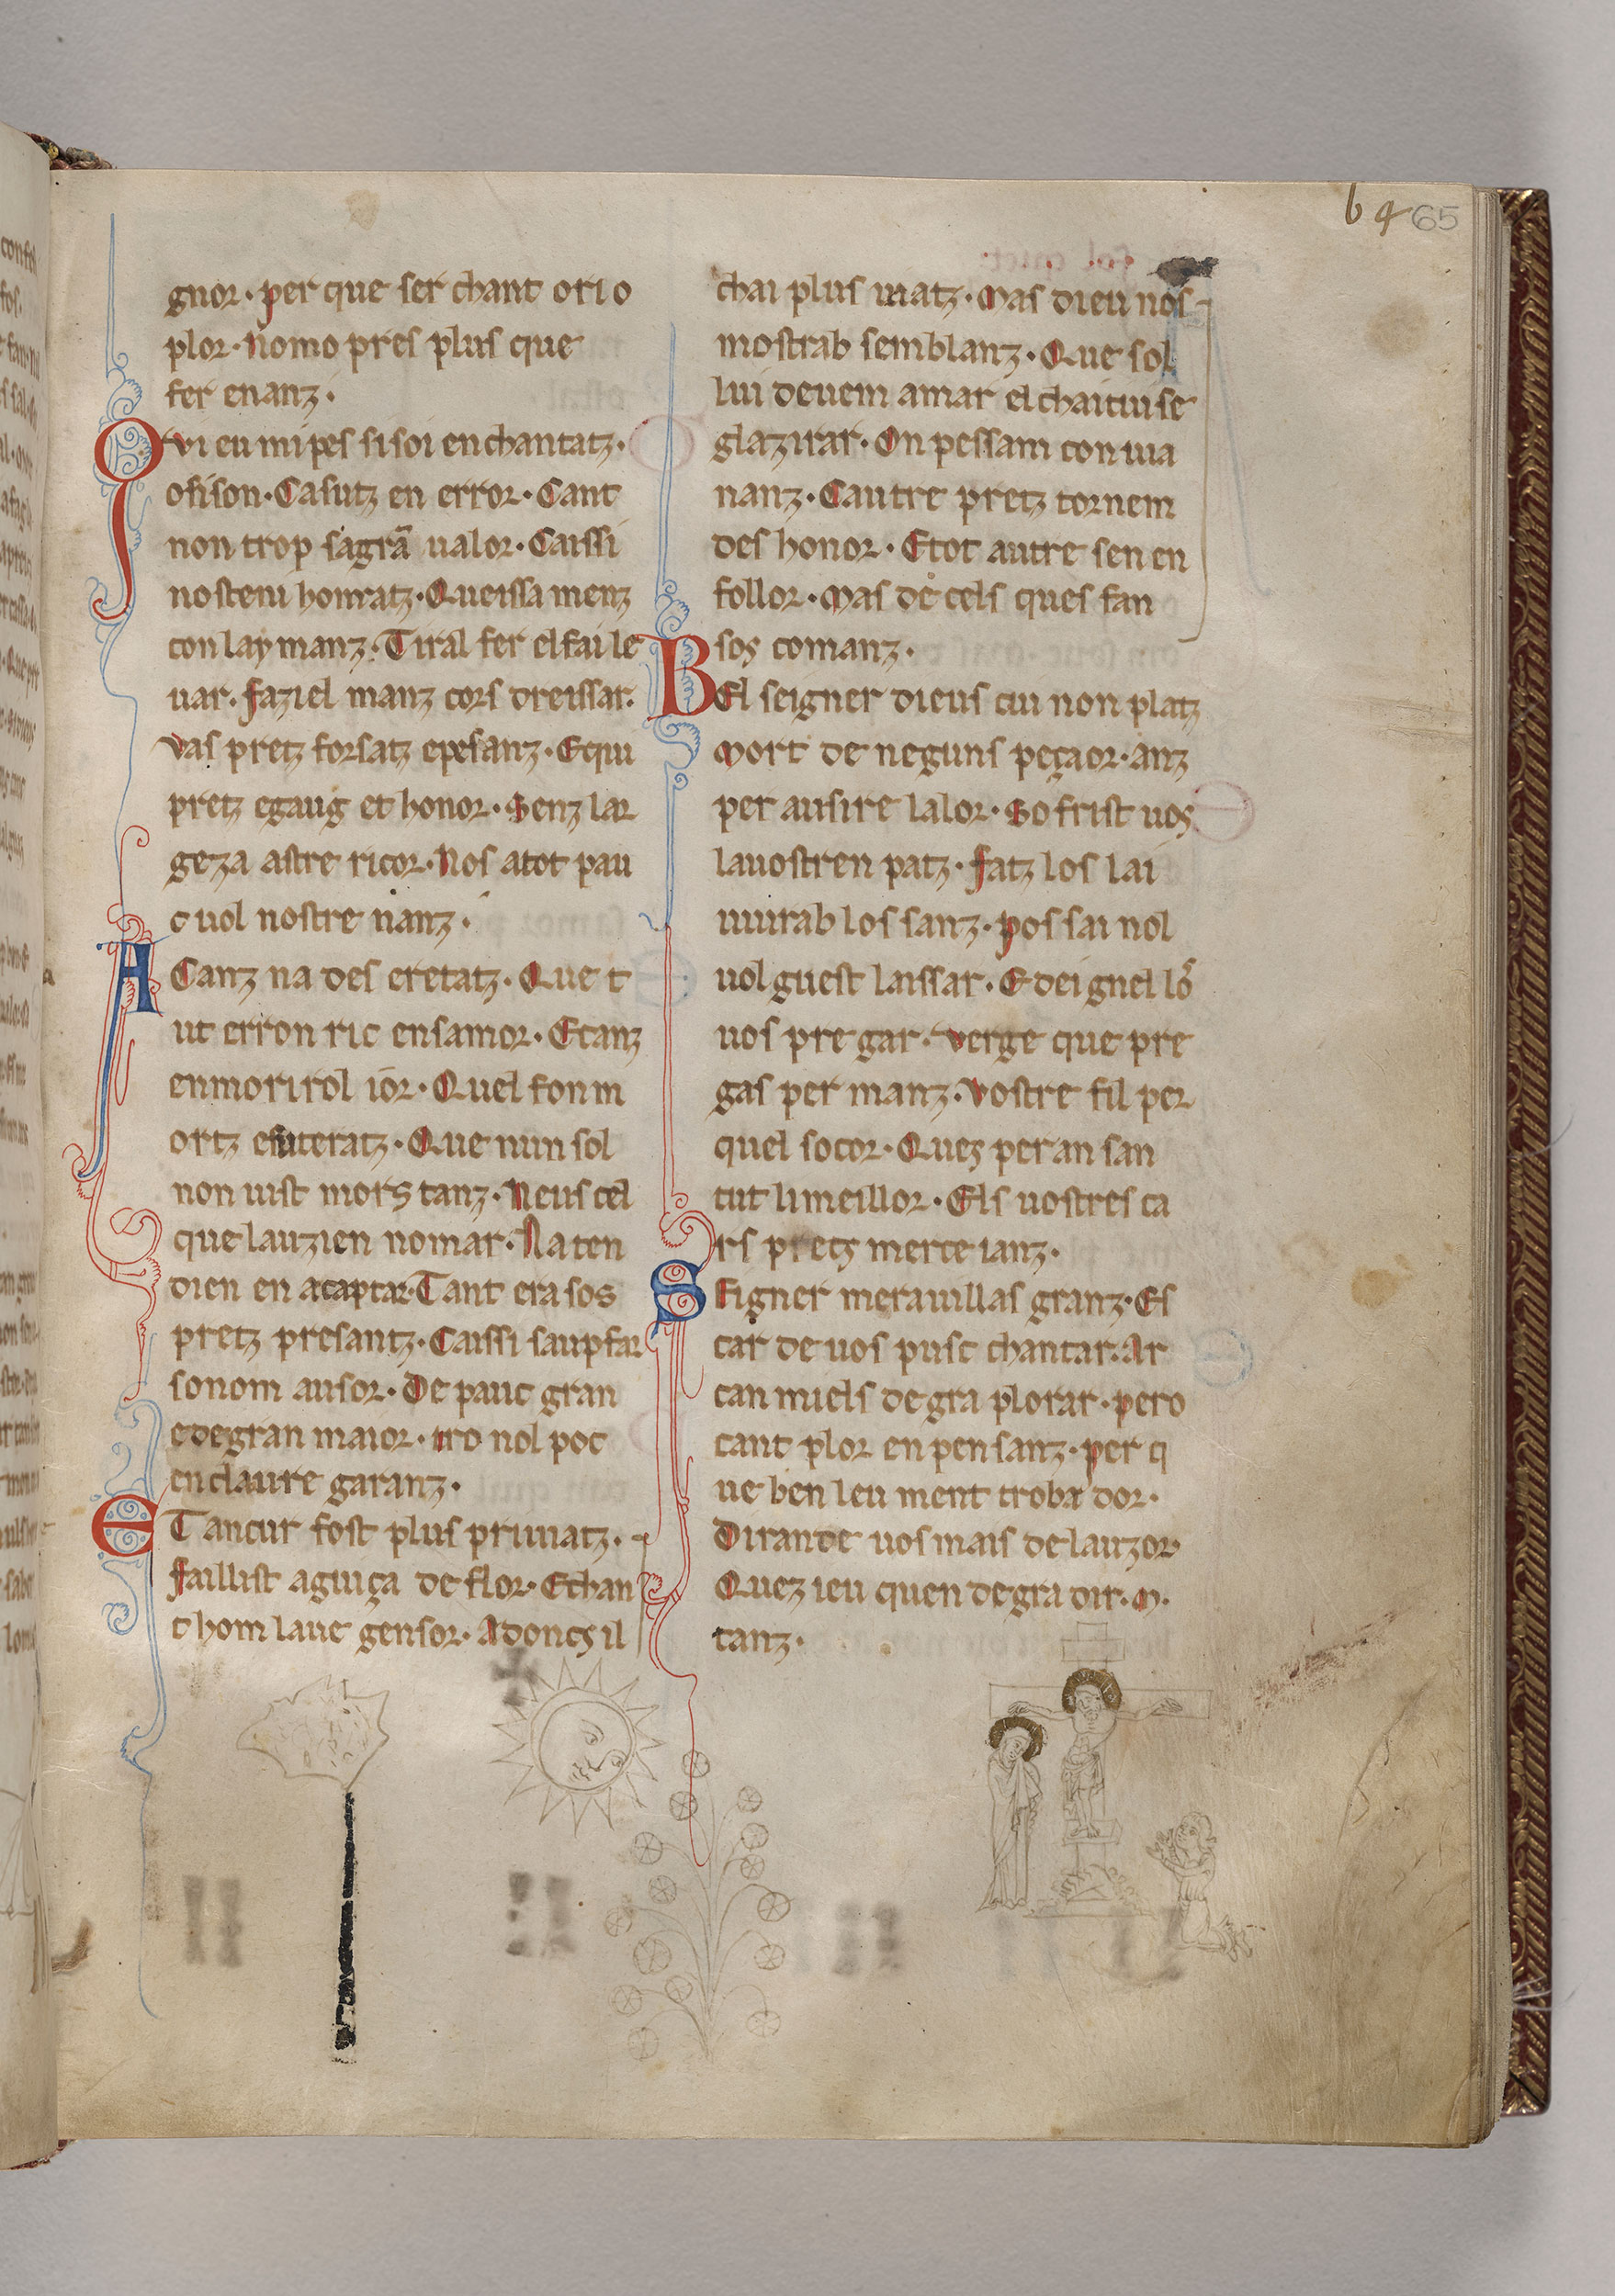 b 4 65
gnor· per que ser chant or io
plor· Nomo pres plus que
fer enanz·
Qvi eu mi pes si soi enchantatz·
ofison· Casutz en error· Cant
non trop sagrã ualor· Caissi
nosteni honratz· Queissa menz
con lay manz· Tiral fer el fai le
uar· faziel manz cors dreissar·
vas pretz forsatz epesanz· Equi
pretz egaug et honor· Senz lar
geza astre ricor· Nos atot pau
c uol nostre nanz·
A Canz na des eretatz· Que t
ut erron ric ensamor· Etanz
enmorirol ior· Quel fon m
ortz esuteratz· Que nun sol
non uist mors tanz· Neus cel
que lauzien nomar· Na ten
dien en acaptar· Tant era sos
pretz presantz· Caissi saup far
sonom ausor· De pauc gran
edegran maior· tro nol poc
enclaure garanz·
E Tancur fost plus priuatz·
faillist aguiça de flor· Et chan
t hom laue gensor· Adoncs il
chai plus uiatz· Mas dieu nos
mostrab semblanz· Que sol
lui deuem amar el chaitiu se
glazirar· On pessam con uia
nanz· Cautre pretz tornem
des honor· E tot autre sen en
follor· Mas de cels ques fan
sos comanz·
BEl seigner dieus cui non platz
Mort de neguns peçaor· anz
per ausire lalor· Sofrist uos
lauostren patz· fatz los lai
uiurab los sanz· pos sai nol
uolguest laissar· E deignel lõ
uos pregar· verge que pre
gas per manz· Vostre fil per
quel socor· Ques peran san
tut li meillor· Els uostres ca
rs pretz merce ianz·
SEigner merauillas granz· Es
car de uos pusc chantar· Ar
can miels degra plorar· pero
cant plor en pensanz· per q
ue ben leu ment trobador·
Diran de uos mais de lauzor·
Quez ieu quen degra dir· M·
tanz·